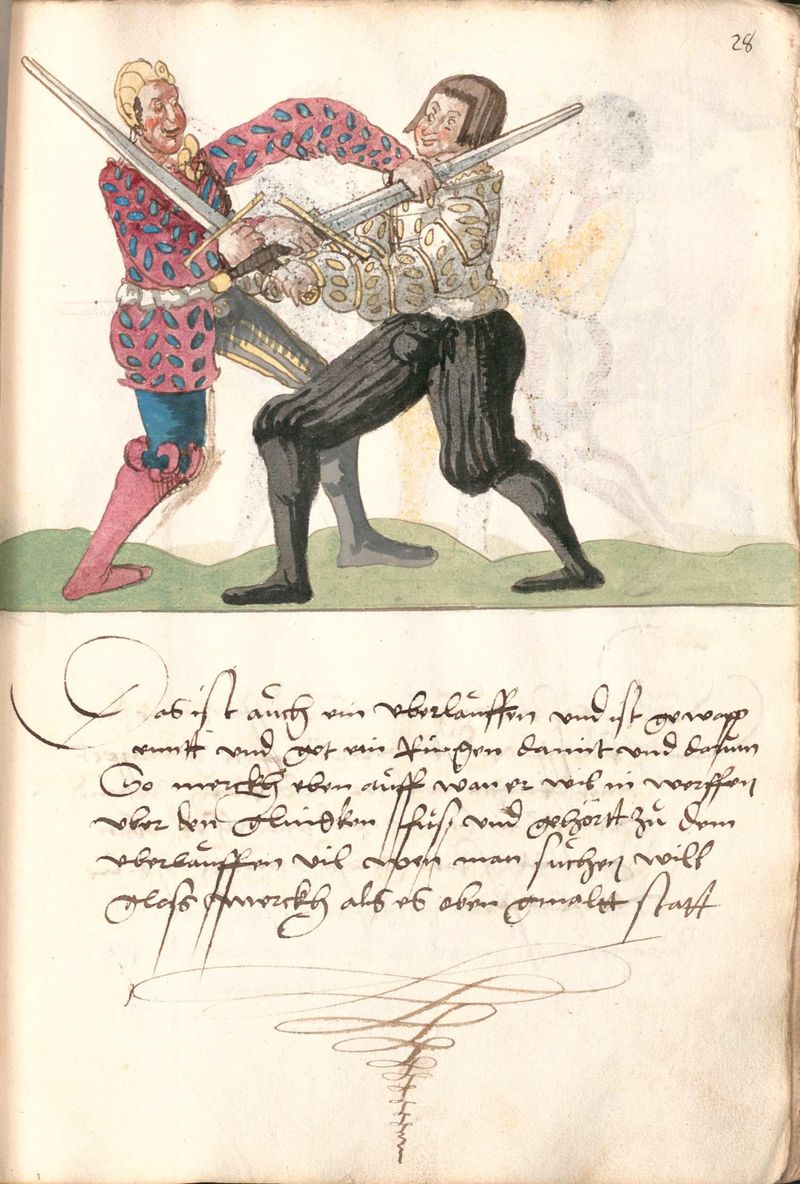 28
Das ist auch ein vberlauffen vnd ist gewapp
vnd get ein Ringen damit vnd darum
So merckh eben auff wan er wil in werffen
vber den glinckhen fuss vnd gehörtt zu dem
vberlauffen vil wen man suchen will
gloss merckh als es oben gmaltt statt